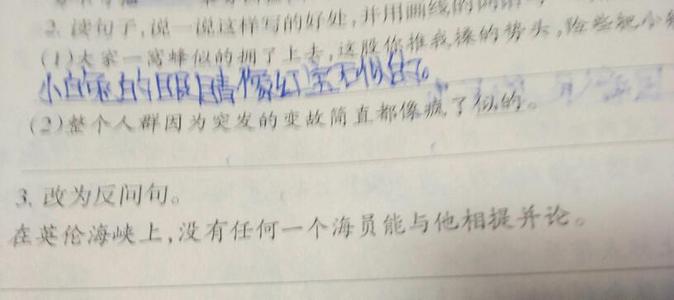 2. 读句子,说一说这样写的好处,并用画线的
(1)大家一窝蜂似的拥了上去,这股你推我搡的势头,险些把小
小白兔的眼睛像红宝石似的。
(2)整个人群因为突发的变故简直都像疯了似的。
3. 改为反问句。
在英伦海峡上,没有任何一个海员能与他相提并论。